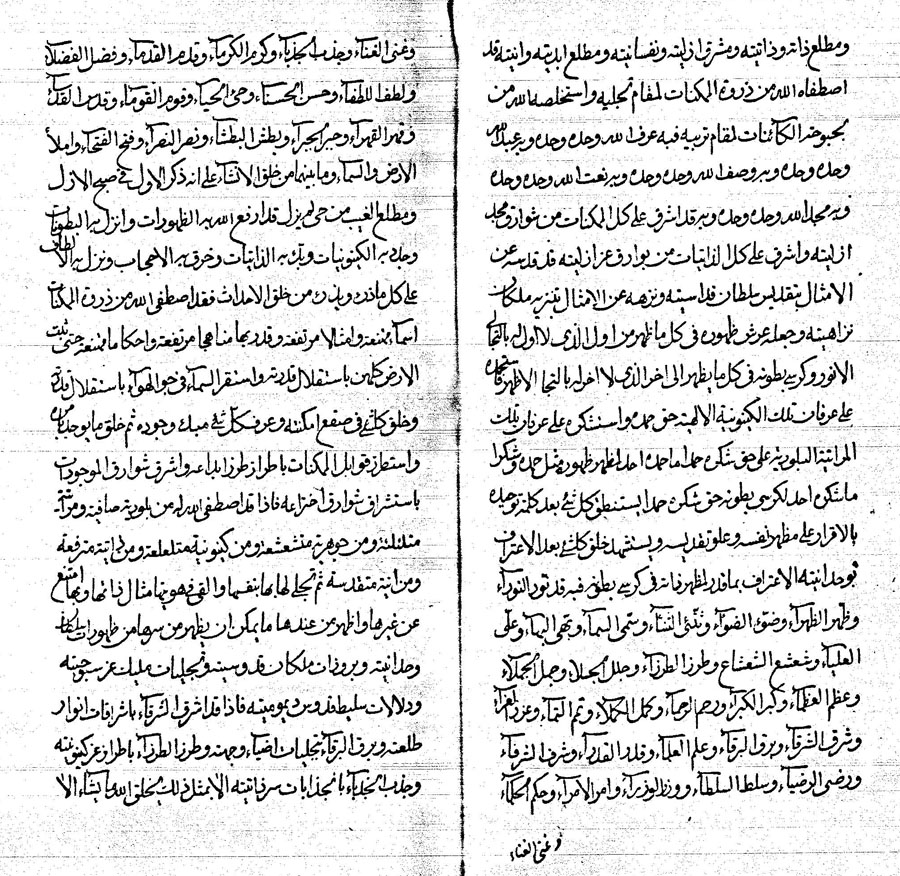 ومطلع ذاته وذاتيته ومشرق ازليته ونفسانيته ومطلع ابديته وانيته قد
اصطفاه الله من ذروة الممكنات لمقام تجليه واستخلصه الله من
بحبوحة الكائنات لمقام تربيه فبه عرف الله وحده وحده وبه عبد الله
وحده وحده وبه وصف الله وحده وحده وبه نعت الله وحده وحده
وبه مجد الله وحده وحده وبه قد اشرق على كل الممكنات من شوارق مجد
ازليته واشرق على كل الذاتيات من بوارق عز ازليته قد قدسه عن
الامثال بتقديس سلطان قداسيته ونزهه عن الامثال بتنزيه ملكان
نزاهيته وجعله عرش ظهوره في كل ما ظهر من اول الذي لا اول له بالتجلي
الانور وكرسي بطونه في كل ما يظهر الى اخر الذي لا اخر له بالتجلا الاظهر فاستحمده
على عرفان تلك الكينونية الالهية حق حمده واستشكره على عرفان تلك
المراتية البلورية على حق شكره حمدا ما حمده احد لعظهر ظهوره مثل حمده وشكرا
ما شكره احد لكرسي بطونه حق شكره حمدا يستنطق كل شئ بعد كلمة توحيده
بالاقرار على مظهر نفسه وعلو تقديسه ويستشهد خلق كل شئ بعد الاعتراف
بوحدانيته الاعتراف بما قدر لمظهر ذاته في كرسي بطونه فبه قد نور النوراء
وظهر الظهراء وضوء الضواء وثنئ الثناء وسمى السماء وبهى البهاء وعلى
العلياء وشعشع الشعشاع وطرز الطرزاء وجلل الجللاء وجمل الجملاء
وعظم العظماء وكبر الكبراء ورحم الرحماء وكمل الكملاء وتم التماء وعزز العززاء
وشرق الشرقاء وبرق البرقاء وعلم العلماء وقدر القدراء وشرف الشرفاء
ورضى الرضياء وسلط السلطاء ووزر الوزراء وامر الامراء وحكم الحكماء
وغنى الغناء
وغنى الغناء وجذب الجذباء وكرم الكرماء وقدم القدماء وفضل الفضلاء
ولطف اللطفاء وحسن الحسناء وحيى الحياء وقوم القوماء وقدس القدساء
وقهر القهراء وجبر الجبراء وبطش البطشاء ونصر النصراء وفتح الفتحاء واملأ
الارض والسماء وما بينهما من خلق الانشاء على انه ذكر الاول في صبح الازل
ومطلع الغيب من حي لم يزل قد ارفع الله به الظهورات وانزل به البطونات
وجلى به الكينونيات وبك به الذاتيات وخرق به الاحجاب ونزل به الالطاف
على كل ما ذكر ويذكر من خلق الاحداث فقد اصطفى الله من ذروة الممكنات
اسماء ممتنعة وامثالا مرتفعة وقدر بها مناهجا مرتفعة واحكاما ممتنعة حتى ثبت
الارض كلهن باستقلال قدرته واستقر السماء في جو الهواء باستقلال قدرته
وخلق كل شئ في صقع امكنته وعرف كل شئ مبدء وجوده ثم خلق ما يوجد بامره
واستطرز قوابل الممكنات باطراز طرز ابداعه واشرق شوارق الموجودات
باستشراق شوارق اختراعه فاذا قد اصطفى الله له من بلورية صافية ومراتية
متلئلئة ومن جوهرية متشعشعة ومن كينونية متلعلعة ومن ذاتية مترفعة
ومن انية متقدسة ثم تجلى لها بها بنفسها والقى في هويتها مثال ذاتها وبها امتنع
عن غيرها واظهر من عندها ما يمكن ان يظهر من سرها من ظهورات سلطان
وحدانيته وبروزات ملكان قدوسيته وتجليات مليك عز سبوحيته
ودلالات سليط فد وبرد يموميته فاذا قد اشرق الشرقاء باشراقات انوار
طلعته وبرق البرقاء بتجليات اضياء وجهته وطرز الطرزاء باطراز عز كينونيته
وجذب الجذباء بانجذابات سر ذاتيته الا بمثل ذلك يخلق الله ما يشاء الا